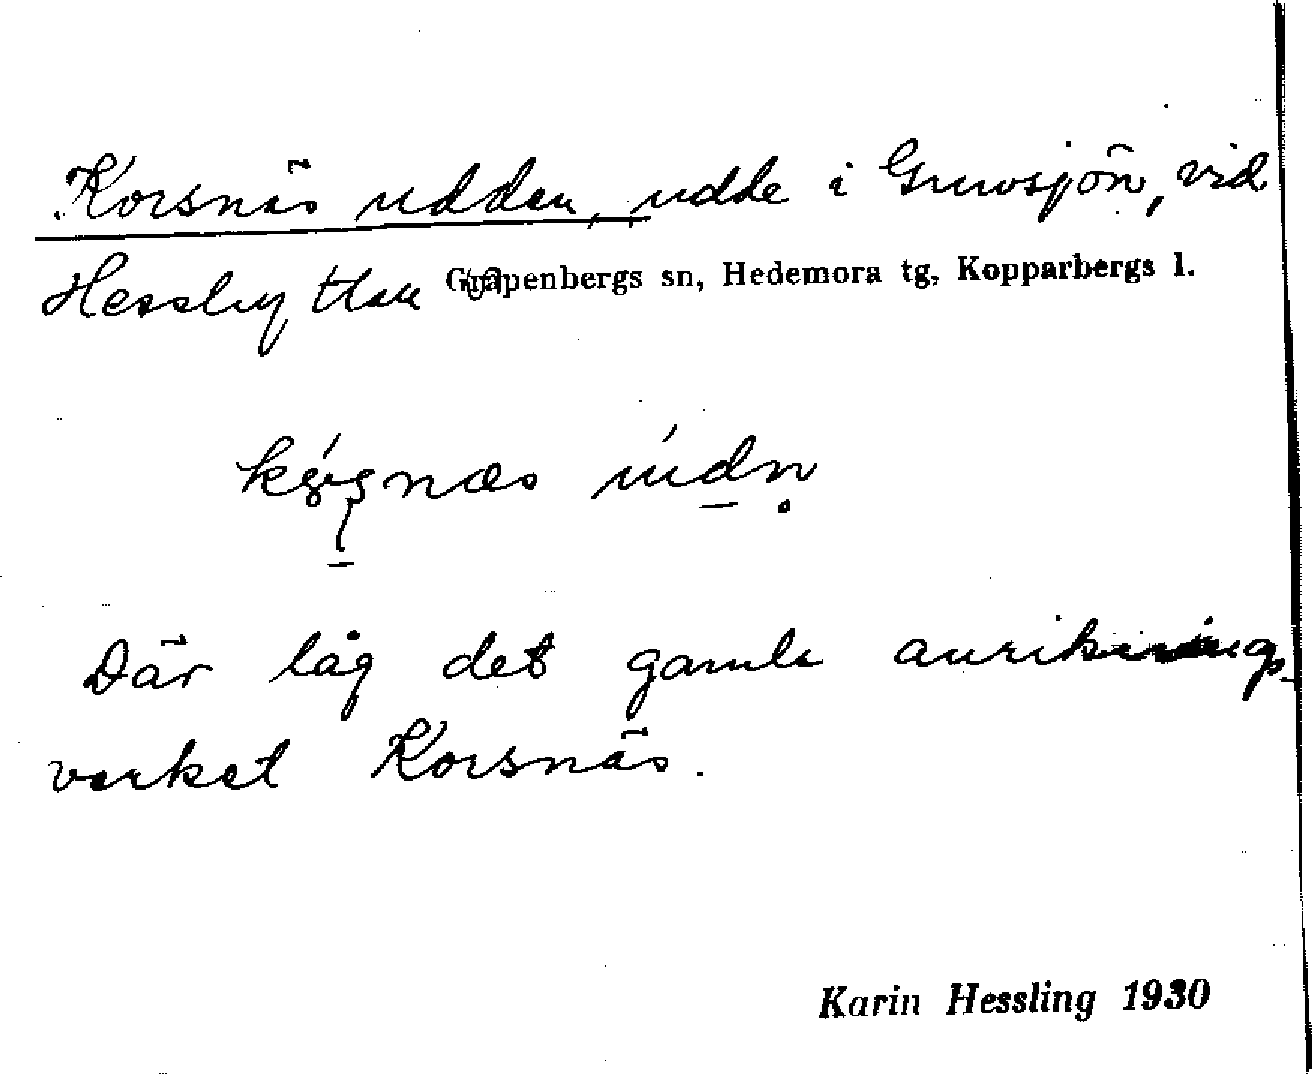 Korsnäs udden, udde i Gruvsjön, vid
Hesshyttan Garpenbergs sn, Hedemora tg, Kopparbergs l.
Där låg det gamla anriknings-
verket Korsnäs.
Karin Hessling 1930